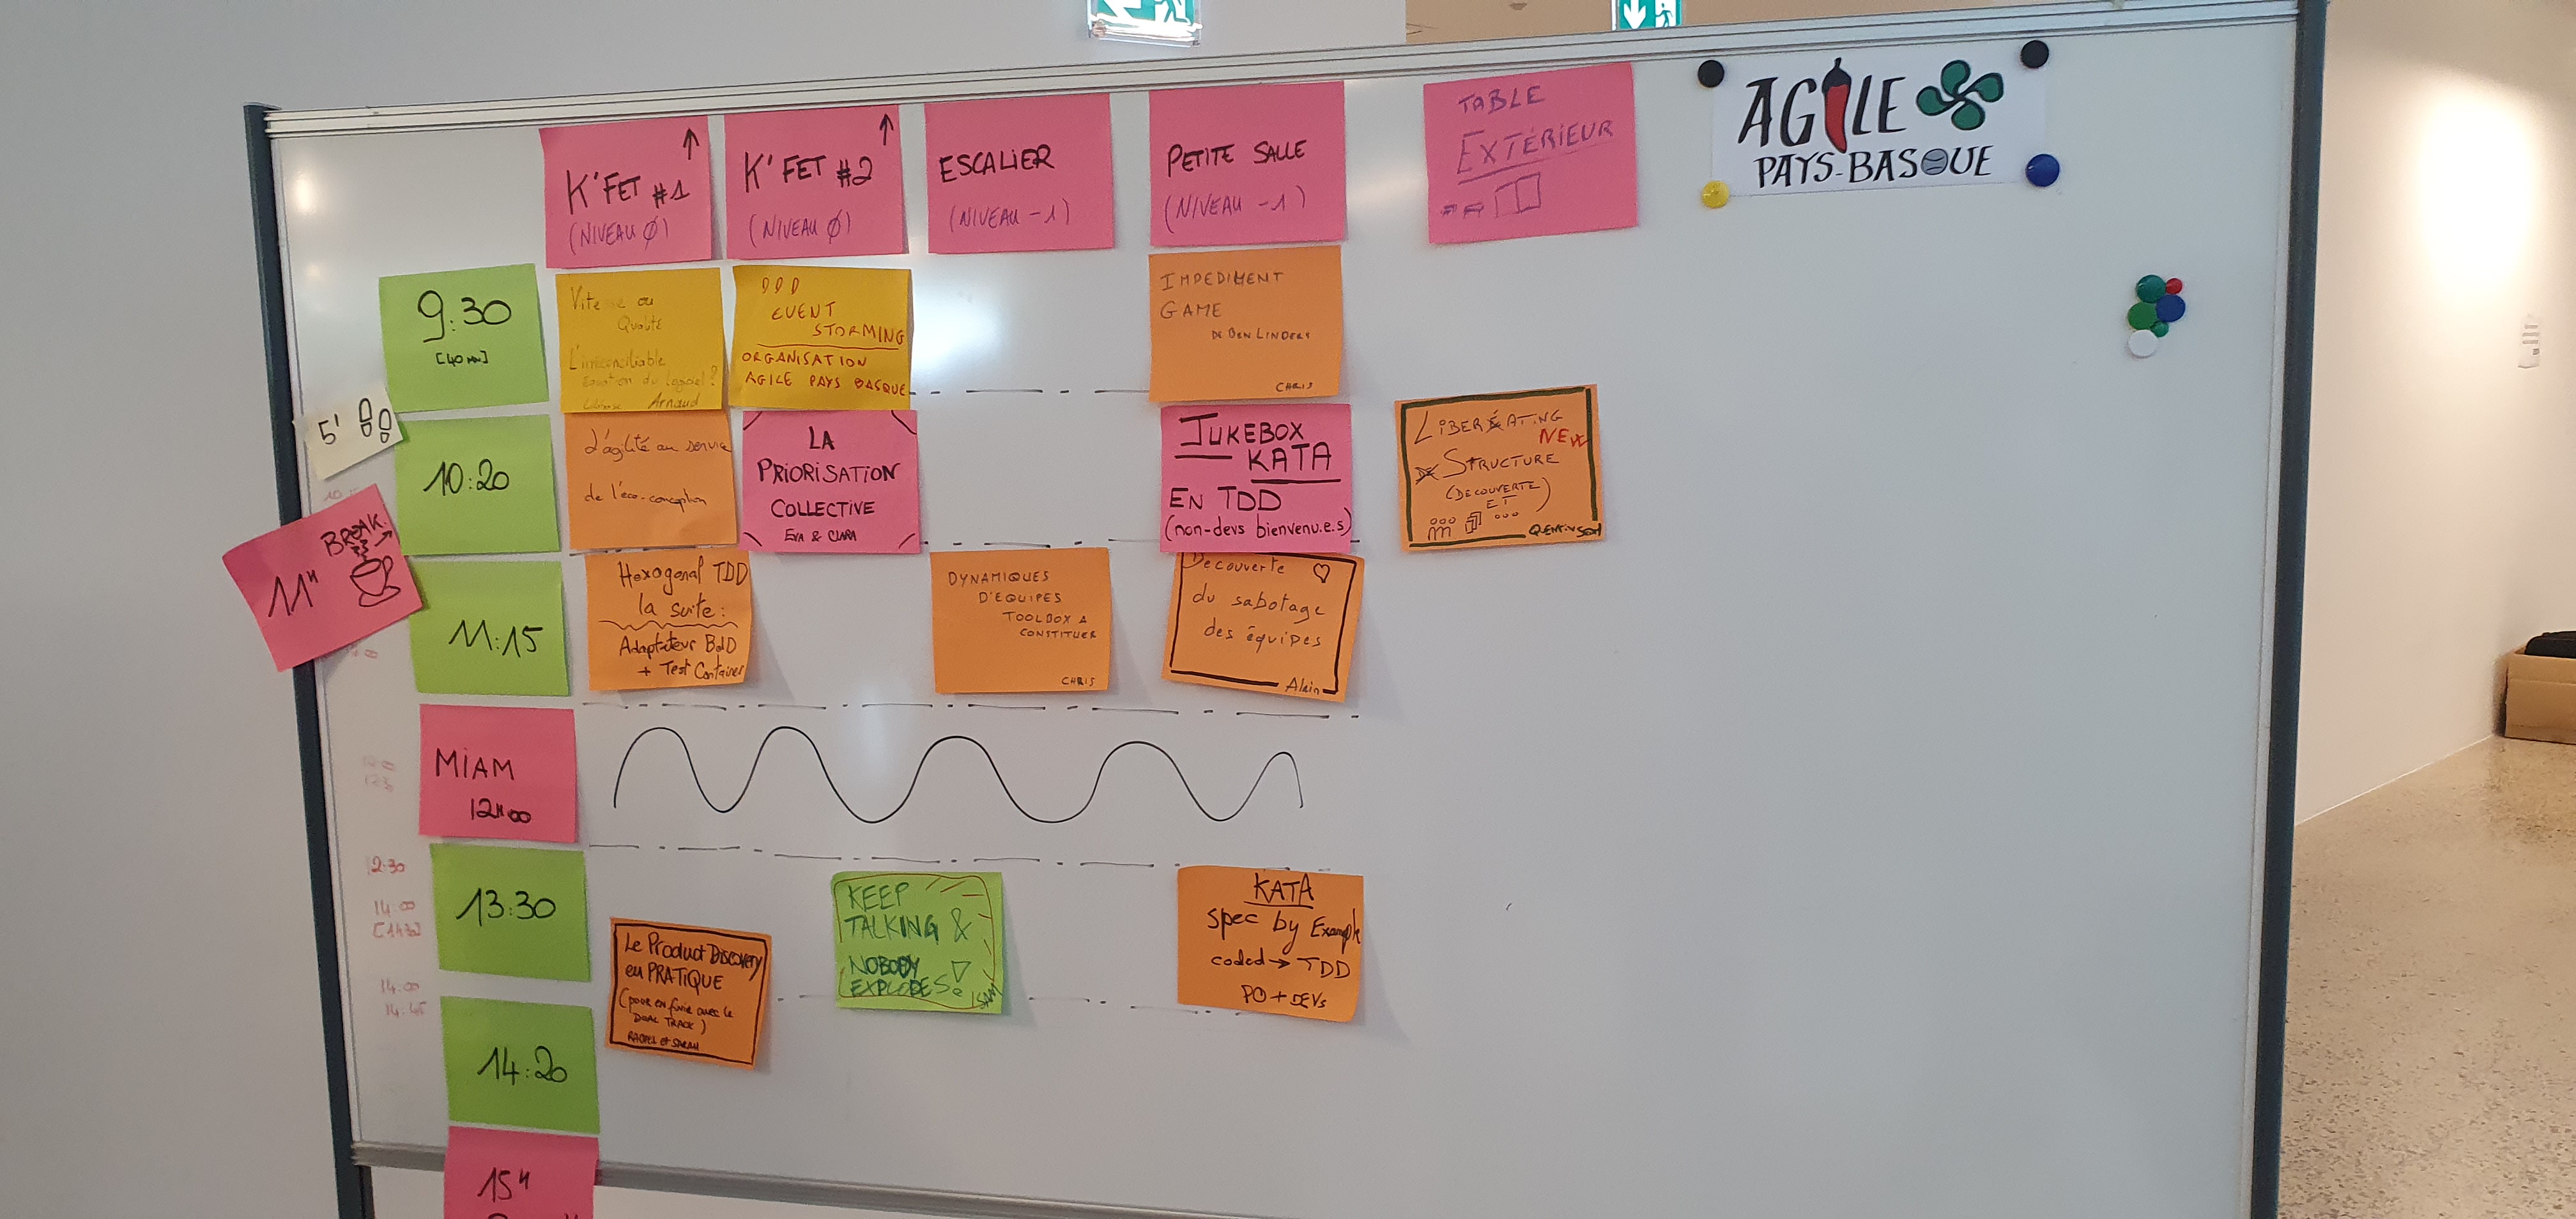 AGILE
PAYS-BASQUE
K'FET #1
(NIVEAU Ø)
K'FET #2
(NIVEAU Ø)
ESCALIER
(NIVEAU -1)
PETITE SALLE
(NIVEAU -1)
TABLE
EXTÉRIEUR
9:30
[40 MN]
Vitesse ou
Qualité
L'irréconciliable
équation du logiciel ?
Arnaud
DDD
EVENT
STORMING
ORGANISATION
AGILE PAYS BASQUE
IMPEDIMENT
GAME
DE BEN LINDERS
CHRIS
5'
10:20
L'agilité au service
de l'éco-conception
LA
PRIORISATION
COLLECTIVE
EVA & CLARA
JUKEBOX
KATA
EN TDD
(non-devs bienvenu.e.s)
LIBERATING
NEW
STRUCTURE
(DECOUVERTE)
ET
QUENTIN
BREAK
11H
11:15
Hexagonal TDD
la suite :
Adaptateur BdD
+ Test Container
DYNAMIQUES
D'EQUIPES
TOOLBOX A
CONSTITUER
CHRIS
Découverte
du sabotage
des équipes
Alain
MIAM
12H00
2:30
14:00
[1430]
14:00
14:45
13:30
Le Product Discovery
en PRATIQUE
(pour en finir avec le
DUAL TRACK)
RACHEL et SARAH
KEEP
TALKING &
NOBODY
EXPLODES!
SAM
KATA
Spec by Example
coded → TDD
PO + DEVs
14:20
15H